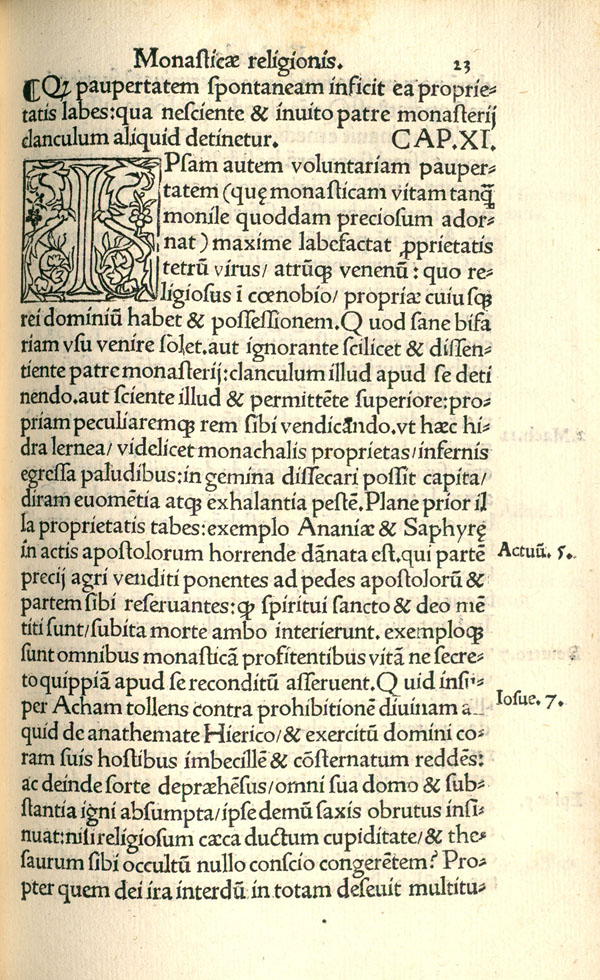 Monasticæ religionis. 23
¶Qꝫ paupertatem spontaneam inficit ea proprie⸗
tatis labes:qua nesciente & inuito patre monasterij
clanculum aliquid detinetur. CAP.XI.
IPsam autem voluntariam pauper⸗
tatem (quę monasticam vitam tanq̃
monile quoddam preciosum ador⸗
nat) maxime labefactat ꝓprietatis
tetrū virus/ atrūqꝫ venenū: quo re⸗
ligiosus ī cœnobio/ propriæ cuiusqꝫ
rei dominiū habet & possessionem.Quod sane bifa
riam vsu venire solet.aut ignorante scilicet & dissen⸗
tiente patre monasterij:clanculum illud apud se deti
nendo.aut sciente illud & permittēte superiore:pro⸗
priam peculiaremqꝫ rem sibi vendicando.vt hæc hi⸗
dra lernea/ videlicet monachalis proprietas/infernis
egressa paludibus:in gemina dissecari possit capita/
diram euomētia atqꝫ exhalantia pestē.Plane prior il
la proprietatis tabes:exemplo Ananiæ & Saphyrę
in actis apostolorum horrende dānata est.qui partē Actuū. 5.
precij agri venditi ponentes ad pedes apostolorū &
partem sibi reseruantes:ꝙ spiritui sancto & deo mē
titi sunt/subita morte ambo interierunt. exemploqꝫ
sunt omnibus monasticā profitentibus vitā ne secre⸗
to quippiā apud se reconditū asseruent.Quid insu⸗
per Acham tollens contra prohibitionē diuinam a Iosue. 7.
quid de anathemate Hierico/& exercitū domini co⸗
ram suis hostibus imbecillē & cōsternatum reddēs:
ac deinde sorte depræhēsus/omni sua domo & sub⸗
stantia igni absumpta/ipse demū saxis obrutus insi⸗
nuat:nisi religiosum cæca ductum cupiditate/& the⸗
saurum sibi occultū nullo conscio congerētem? Pro⸗
pter quem dei ira interdū in totam deseuit multitu⸗